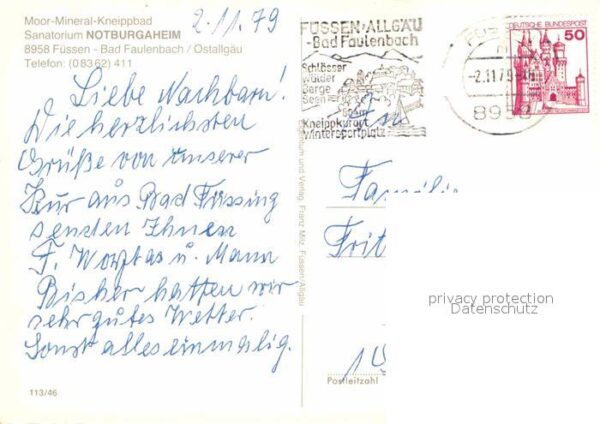 Moor-Mineral-Kneippbad
Sanatorium NOTBURGAHEIM
8958 Füssen - Bad Faulenbach / Ostallgäu
Telefon: (0 83 62) 411
2.11.79
Liebe Nachbarn!
Die herzlichsten
Grüße von unserer
Kur aus Bad Füssing
senden Ihnen
F. u. Mann
Bisher hatten wir
sehr gutes Wetter.
Sonst alles einmalig.
113/46
und Verlag Franz Milz, Füssen/Allgäu
FÜSSEN·ALLGÄU
-Bad Faulenbach
Schlösser
Wälder
Berge
Seen
Kneippkurort
Wintersportplatz
-2.11.79
8958
DEUTSCHE BUNDESPOST
50
An
Famili
Frit
privacy protection
Datenschutz
Postleitzahl